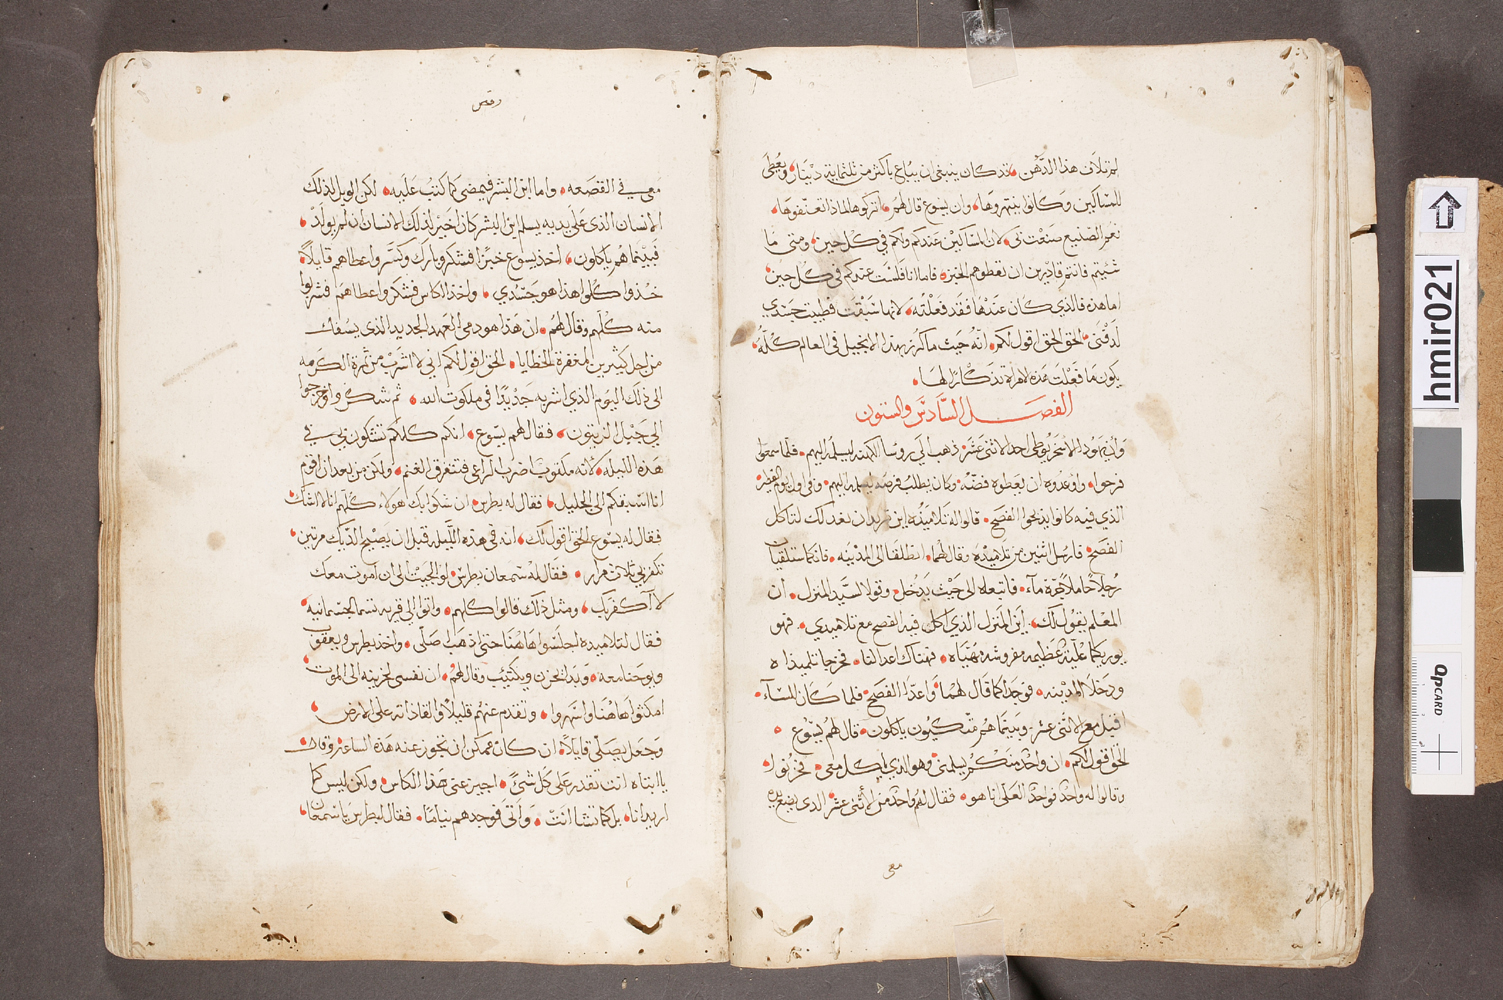 لم تلاف هذا الدهن قد كان ينبغي ان يباع باكثر من ثلثماية دينار ويعطى
للمساكين وكانوا ينتهروها وان يسوع قال لهم اتركوها لماذا تعنفوها
نعم الصنيع صنعت بي لان المساكين عندكم ولكم في كل حين ومتى ما
شيتم فانتم قادرين ان تعطوهم الخبز فاما انا فلست عندكم في كل حين
اما هذه فالذي كان عندها فقد فعلته لانها سبقت فطيبت جسدي
لدفني الحق الحق اقول لكم انه حيث ما كرز بهذا الانجيل في العالم كله
يكون ما فعلت هذه الامراة تذكارا لها
الفصل السادس والستون
وان يهودا الاسخريوطي احد الاثني عشر ذهب الي روسا الكهنه ليسلمه اليهم فلما سمعوا
فرحوا واوعدوه ان يعطوه فضه وكان يطلب فرصه ليسلمه اليهم وفي اول يوم الفطير
الذي فيه كانوا يذبحوا الفصح قالوا له تلاميذه اين تريد ان نعد لك لتاكل
الفصح فارسل اثنين من تلاميذه وقال لهما انطلقا الى المدينه فانكما ستلقيان
رجلا حاملا جرة ماء فاتبعاه الى حيث يدخل وقولا لسيد المنزل ان
المعلم يقول لك اين المنزل الذي اكل فيه الفصح مع تلاميذي فهو
يوريكما علية عظيمه مفروشه مهياه فهناك اعدا لنا فخرجا تلميذاه
ودخلا المدينه فوجدا كما قال لهما واعدا الفصح فلما كان المساء
اقبل مع الاثني عشر وبينما هم متكيون ياكلون قال لهم يسوع
الحق اقول لكم ان واحد منكم يسلمني وهو الذي ياكل معي فحزنوا
وقالوا له واحد فواحد العلي انا هو فقال لهم واحد من الاثني عشر الذي يضع يده
معي
معي في القصعه واما ابن البشر فيمضى كما كتب عليه لكن الويل لذلك
الانسان الذى على يديه يسلم ابن البشر كان اخير لذلك الانسان ان لم يولد
فبينما هم ياكلون اخذ يسوع خبزا فشكر وبارك وكسر واعطاهم قايلا
خذوا كلوا هذا هو جسدي واخذ الكاس فشكر واعطاهم فشربوا
منه كلهم وقال لهم ان هذا هو دمي العهد الجديد الذى يسفك
من اجل كثيرين لمغفرة الخطايا الحق اقول لكم اني لا اشرب من ثمرة الكرمه
الى ذلك اليوم الذي اشربه جديدا في ملكوت الله ثم شكروا وخرجوا
الي جبل الزيتون فقال لهم يسوع انكم كلكم تشكون بي في
هذه الليله لانه مكتوب اضرب الراعي فتتفرق الغنم ولكن من بعد ان اقوم
انا اسبقكم الى الجليل فقال له بطرس ان شكوا بك هولاء كلهم انا لا اشك
فقال له يسوع الحق اقول لك انه في هذه الليله قبل ان يصيح الديك مرتين
تكفر بي ثلاث مرار فقال له سمعان بطرس لو الجيت الى ان اموت معك
لا اكفر بك ومثل ذلك قالوا كلهم واتوا الي قريه تسما الجسمانيه
فقال لتلاميذه اجلسوا هاهنا حتى اذهب اصلى واخذ بطرس ويعقوب
ويوحنا معه وبدا يحزن ويكتيب وقال لهم ان نفسى لحزينه الى الموت
امكثوا هاهنا واسهروا وتقدم عنهم قليلا والقا ذاته على الارض
وجعل يصلى قايلا ان كان ممكن ان تجوز عنه هذه الساعه وقال
ياابتاه انت تقدر على كل شئ اجيز عني هذا الكاس ولكن ليس كما
اريد انا بل كما تشا انت واتى فوجدهم نياما فقال لبطرس ياسمعان